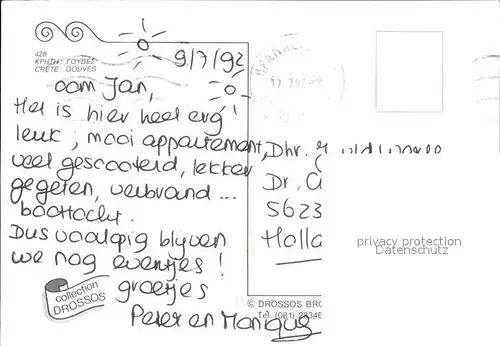 9/7/92
428
ΚΡΗΤΗ ΓΟΥΒΕΣ
CRÈTE GOUVES
oom Jan,
Het is hier heel erg
leuk, mooi appartement,
veel gescooterd, lekker
gegeten, verbrand ...
boottocht.
Dus voorlopig blijven
we nog eventjes!
groetjes
Peter en Monique
Dhr.
Dr.
5623
Holla
privacy protection
Datenschutz
collection
DROSSOS
© DROSSOS BRO
Tel. (081) 28346